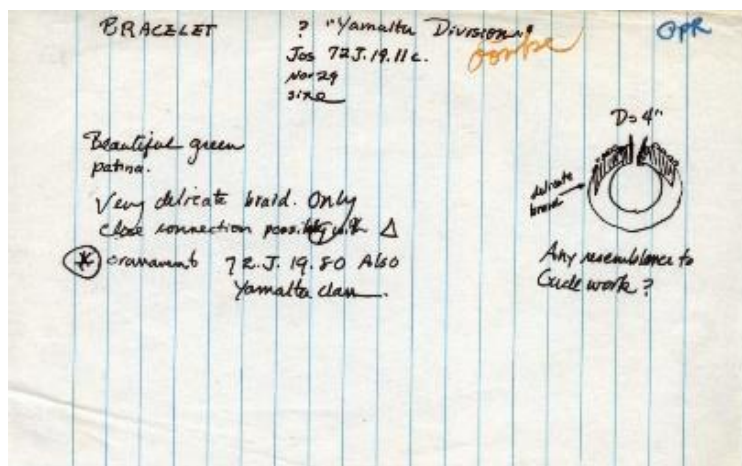 BRACELET
? "Yamaltu Division"
OPR
Jos 72J.19.11c.
Nov 29
size
D=4"
Beautiful green
patina.
Very delicate braid. Only
close connection possibly with △
* ornament 72.J.19.80 Also
Yamaltu clan.
delicate
braid
Any resemblance to
Gude work?